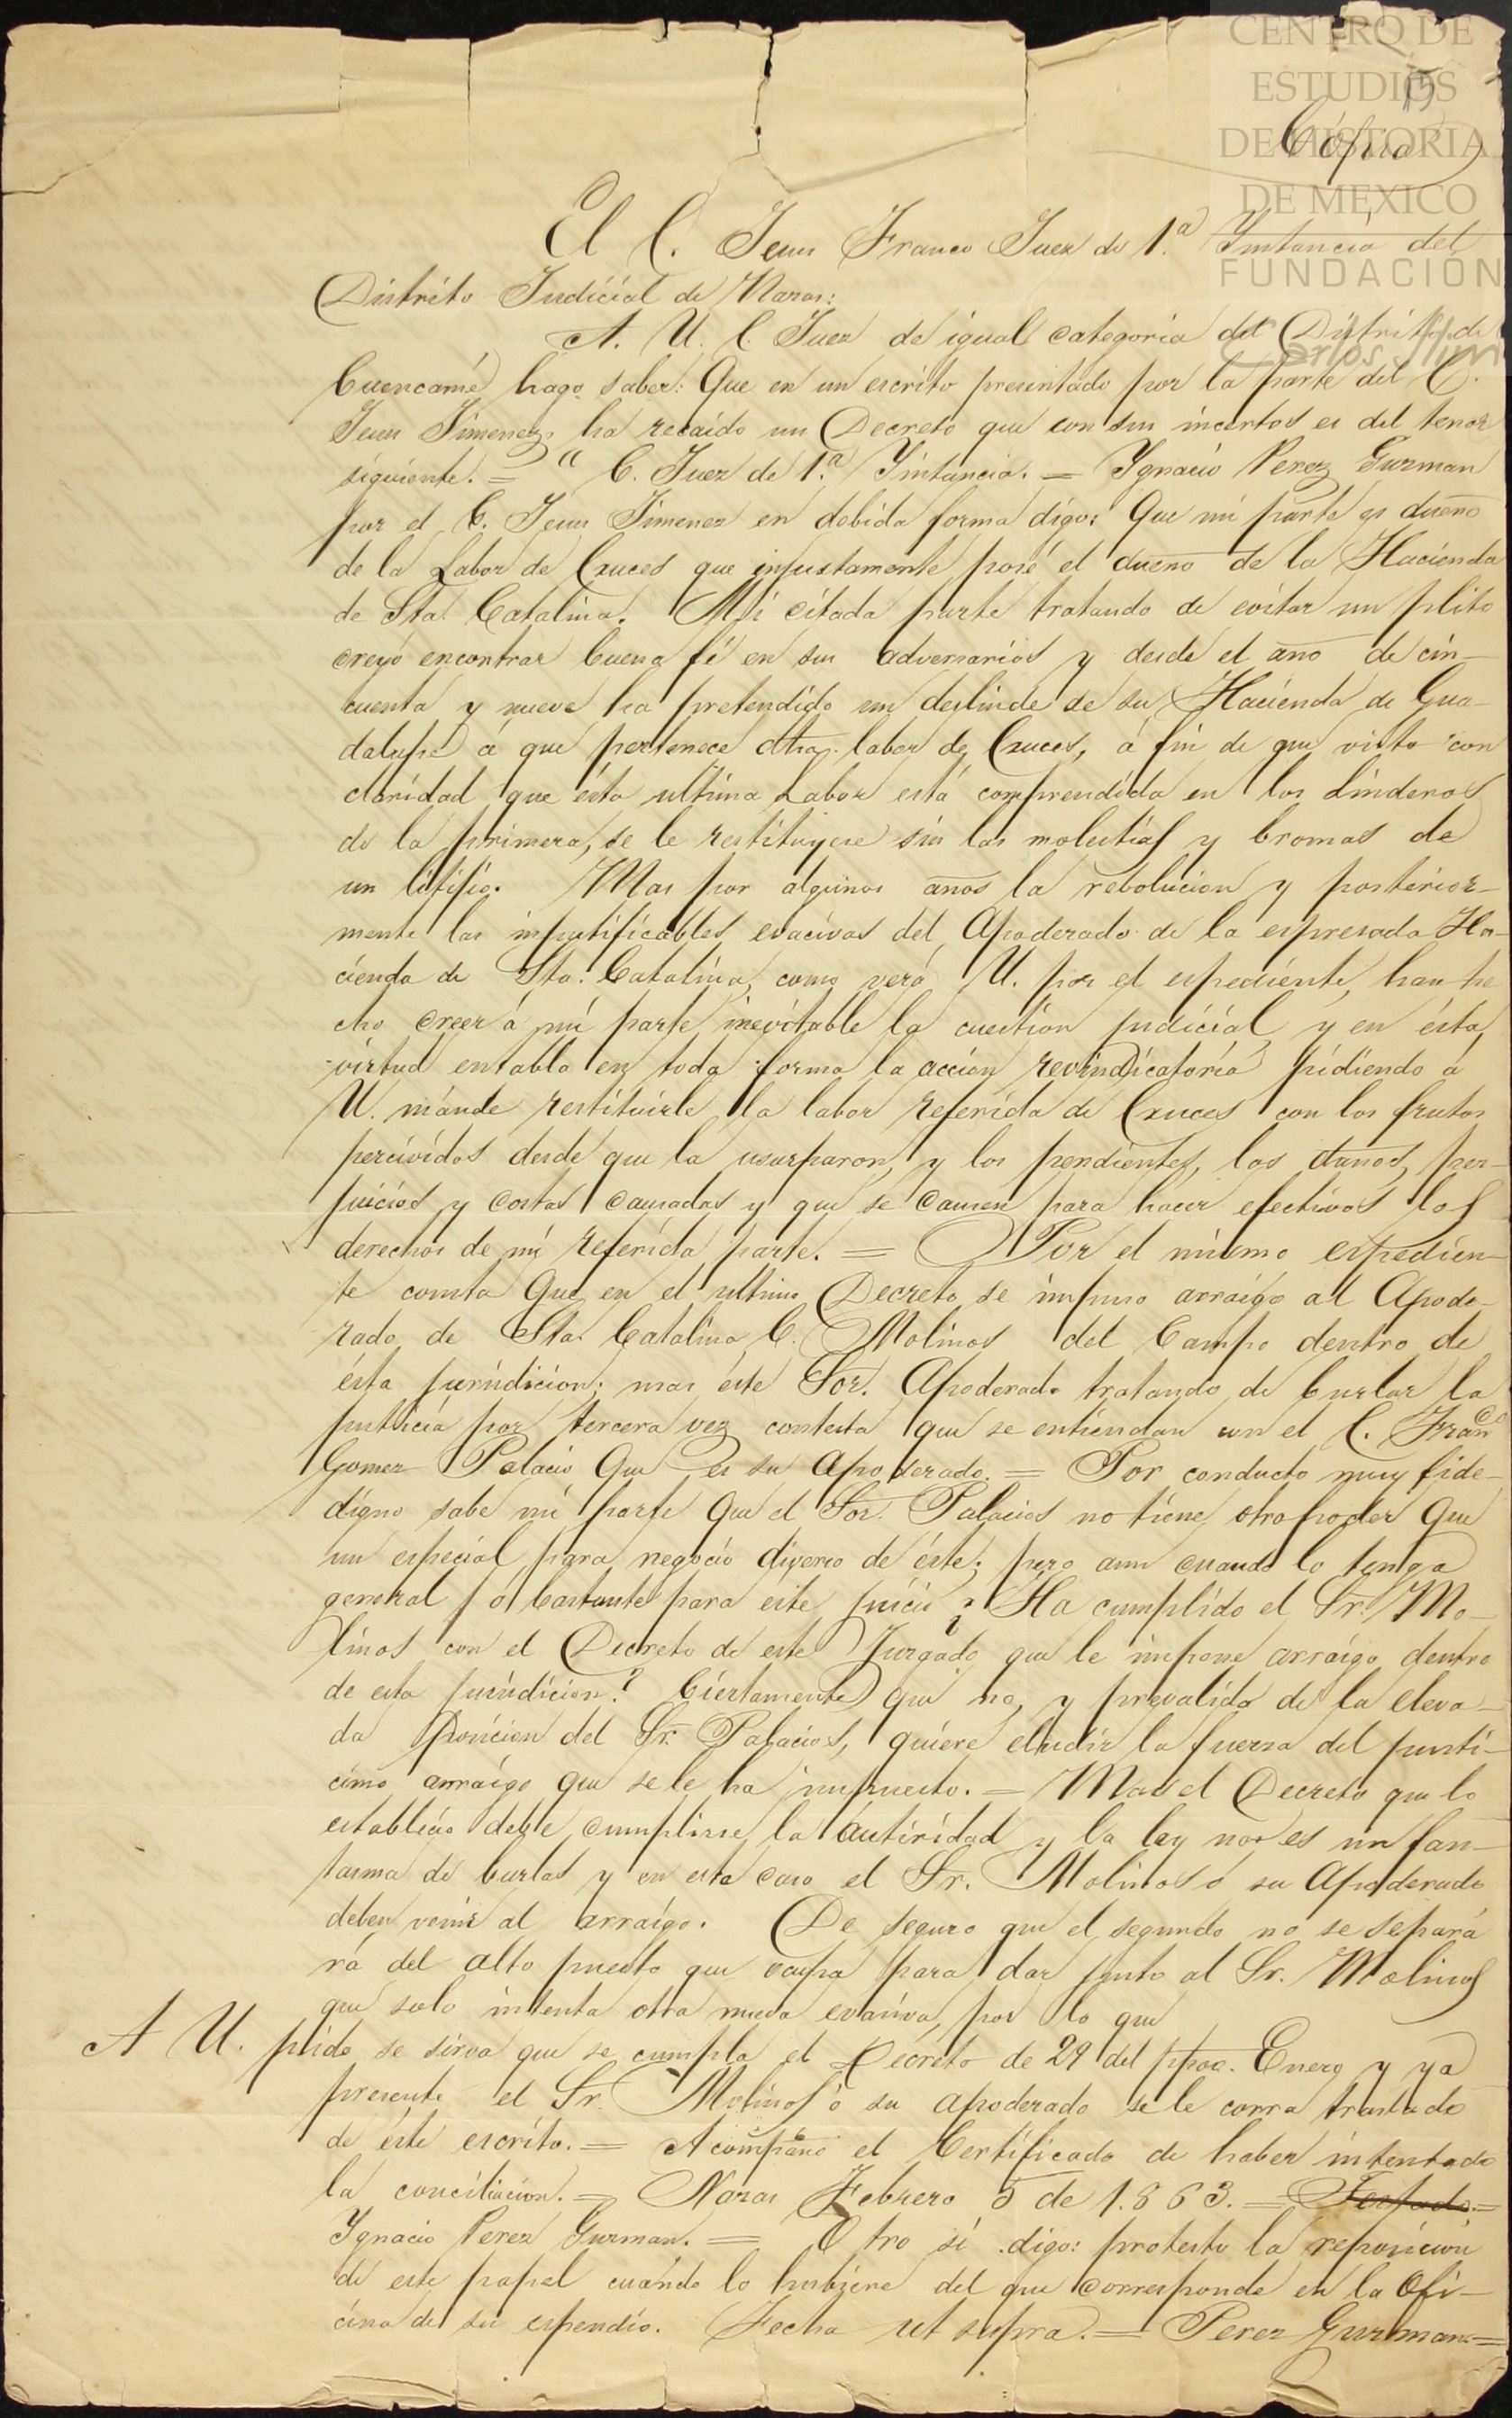 CENTRO DE
ESTUDIOS
DE HISTORIA
DE MÉXICO
FUNDACIÓN
Carlos Slim
Cópia
El C. Jesus Franco Juez de 1.ª Ynstancia del
Distrito Judicial de Nazas:
A. U. C. Juez de igual categoria del Distrito de
Cuencamé hago saber: Que en un escrito presentado por la parte del C.
Jesus Jimenez, ha recaido un Decreto que con sus incertos es del tenor
siguiente. = " C. Juez de 1.ª Ynstancia. = Ygnacio Perez Guzman
por el C. Jesus Jimenez en debida forma digo: Que mi parte es dueño
de la Labor de Cruces que injustamente posé el dueño de la Hacienda
de Sta. Catalina. Mi citada parte tratando de evitar un plito
creyó encontrar buena fé en sus adversarios y desde el año de cin-
cuenta y nueve ha pretendido un deslinde de su Hacienda de Gua-
dalupe á que pertenece dha. labor de Cruces, á fin de que visto con
claridad que ésta ultima Labor está comprendida en los Linderos
de la primera, se le restituyese sin las molestias y bromas de
un litijio. Mas por algunos años la rebolucion y posterior-
mente las injustificables evacivas del Apoderado de la espresada Ha-
cienda de Sta. Catalina, como verá U. por el espediente, han he
cho creer á mi parte inevitable la cuestion judicial y en ésta
virtud entabla en toda forma la accion revindicatoria pidiendo á
U. mánde restituirle la labor referida de Cruces con los frutos
percividos desde que la usurparon, y los pendientes, los daños, per-
juicios y costas causadas y que se causen para hacer efectivos los
derechos de mi referida parte. = Por el mismo espedien-
te consta Que en el ultimo Decreto se impuso arraigo al Apode-
rado de Sta. Catalina C. Molinos del Campo dentro de
ésta jurisdicion; mas éste Sor. Apoderado tratando de burlar la
justicia por tercera vez contesta que se entiendan con el C. Franco
Gomez Palacio Que es su Apoderado. = Por conducto muy fide-
digno sabe mi parte Que el Sor. Palacios no tiene otro poder Que
un especial para negocio diverso de éste; pero aun cuando lo tenga
general ó bastante para éste juicio ¿ Ha cumplido el Sr. Mo-
linos con el Decreto de este Juzgado que le impone arraigo dentro
de esta jurisdicion? Ciertamente que no, y prevalido de la eleva-
da posicion del Sr. Palacios, quiere eludir la fuerza del justi-
cimo arraigo que se le ha impuesto. = Mas el Decreto que lo
estableció debe cumplirse, la autiridad y la ley nos es un fan-
tasma de burlas y en este caso el Sr. Molinos ó su Apoderado
deben venir al arraigo. De seguro que el segundo no se separa
rá del alto puesto que ocupa para dar gusto al Sr. Molinos
que solo intenta otra nueva evasiva, por lo que
A U. pido se sirva que se cumpla el Decreto de 29 del ppdo. Enero y ya
presente el Sr. Molinos ó su apoderado se le corra traslado
de éste escrito. = Acompaño el Certificado de haber intentado
la conciliacion. = Nazas Febrero 5 de 1.863. = Testado. =
Ygnacio Perez Guzman. = Otro si digo: protesto la reposicion
de este papel cuándo lo hubiere del que corresponde en la Ofi-
cina de su espendio. Fecha ut supra. = Perez Guzman =